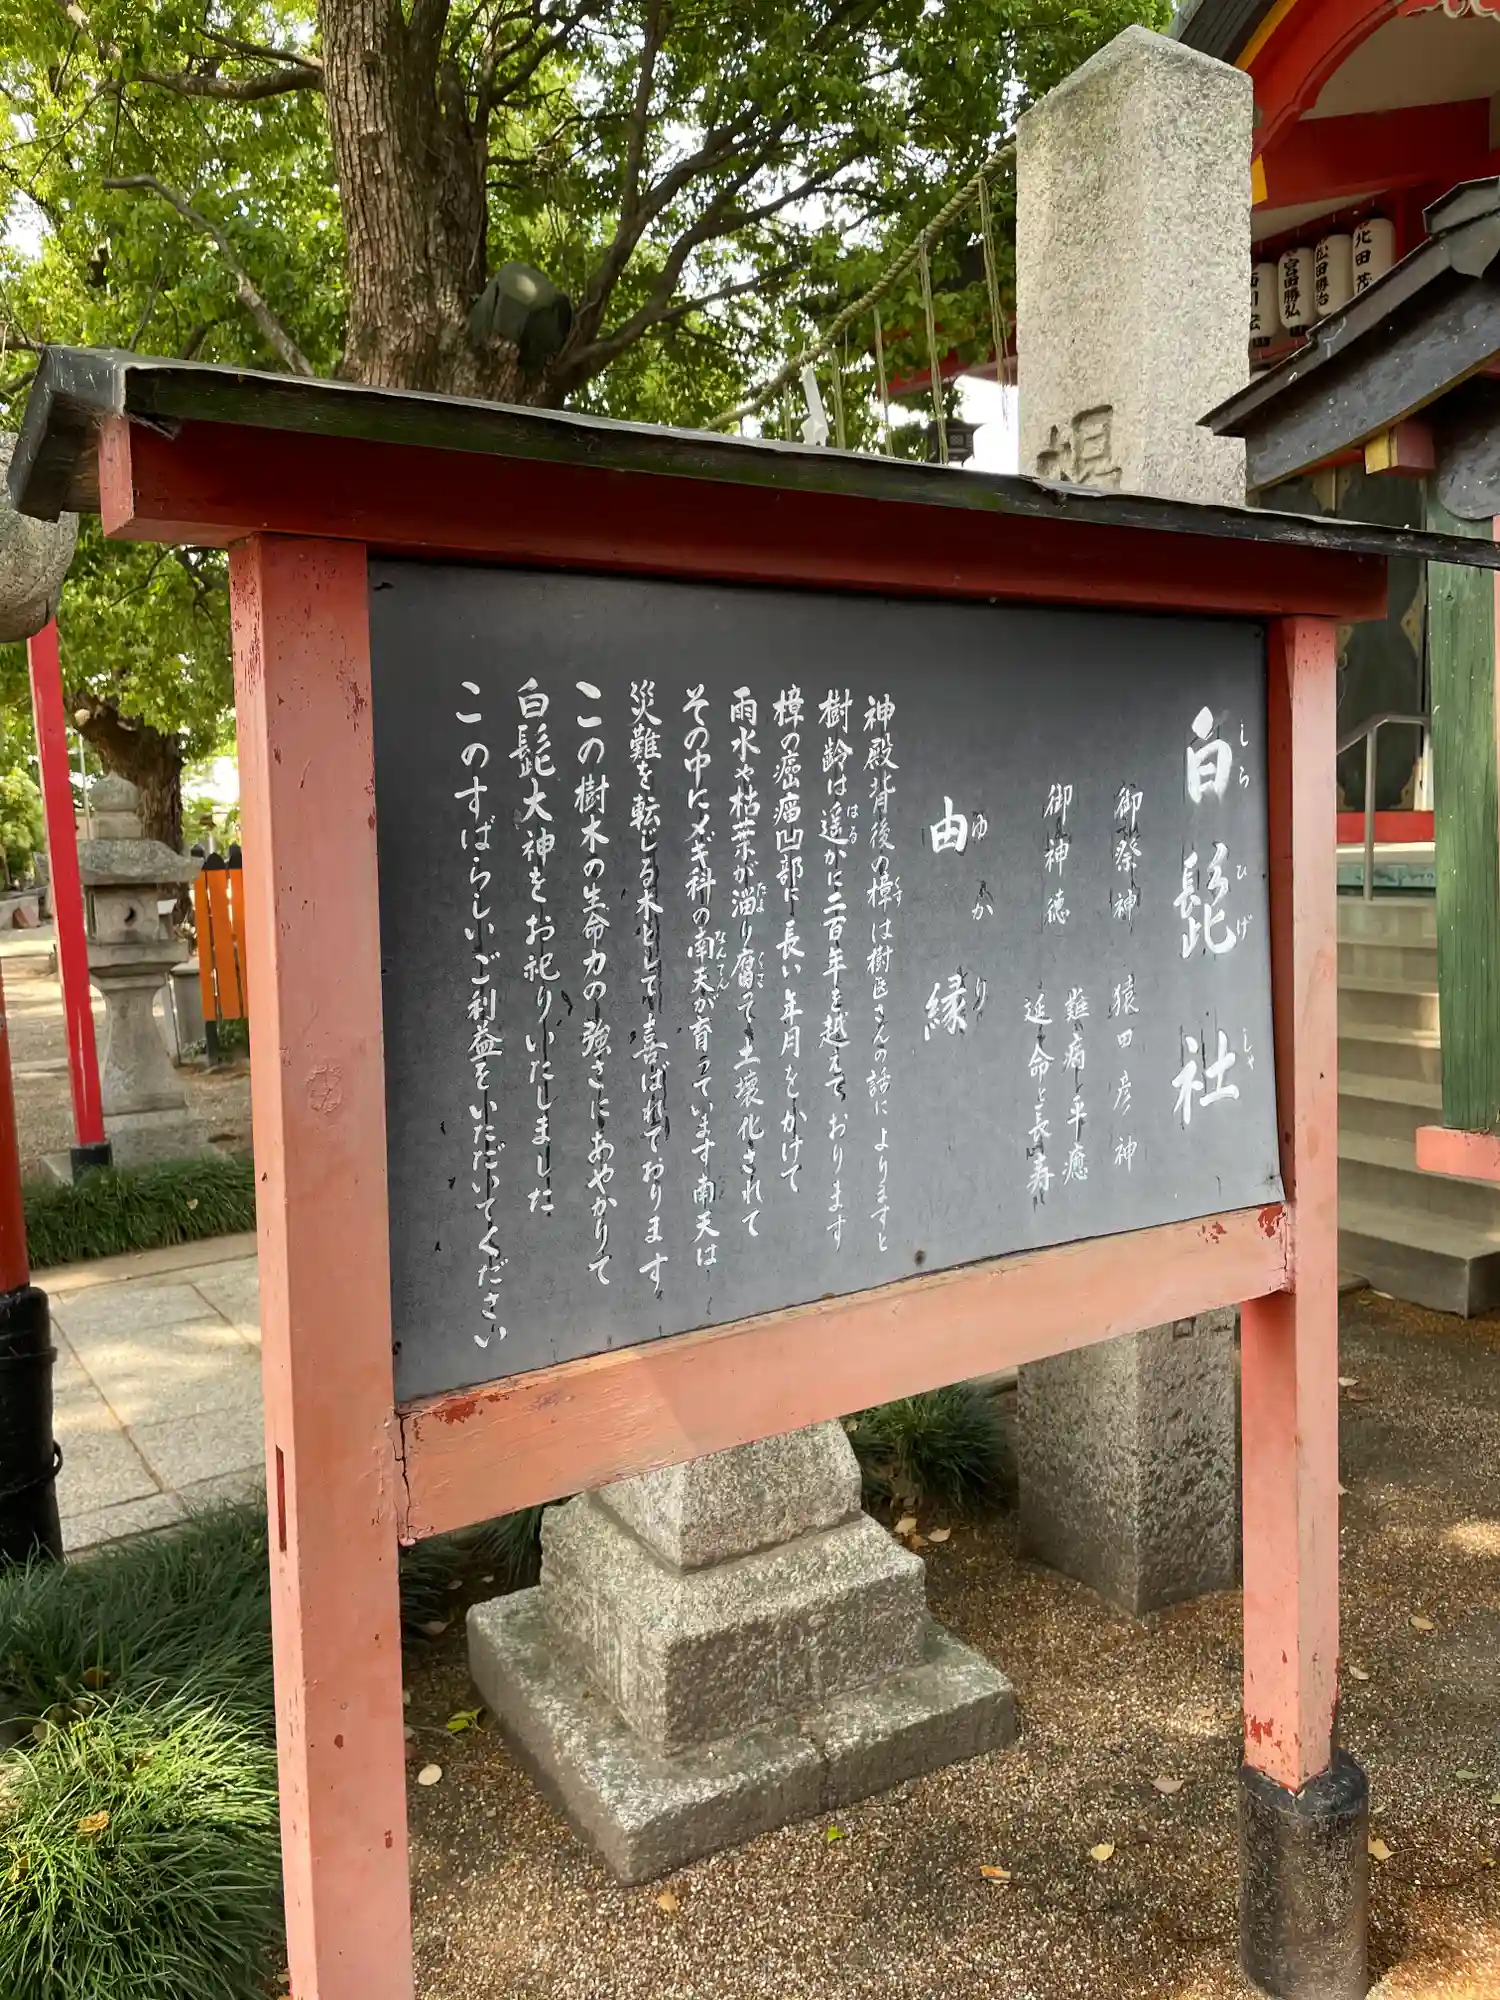 白髭社
しらひげしゃ
御祭神 猿田彦神
御神徳 難病平癒
延命と長寿
由縁
ゆかり
神殿背後の樟は樹医さんの話によりますと
くす
樹齢は遥かに二百年を越えております
はる
樟の瘤凹部に長い年月をかけて
雨水や枯葉が溜り腐って土壌化されて
たま
くさ
その中にメギ科の南天が育っています南天は
なんてん
災難を転じる木として喜ばれております
この樹木の生命力の強さにあやかりて
白髭大神をお祀りいたしました
このすばらしいご利益をいただいてください
宮田勝弘
松田勝治
北田茂